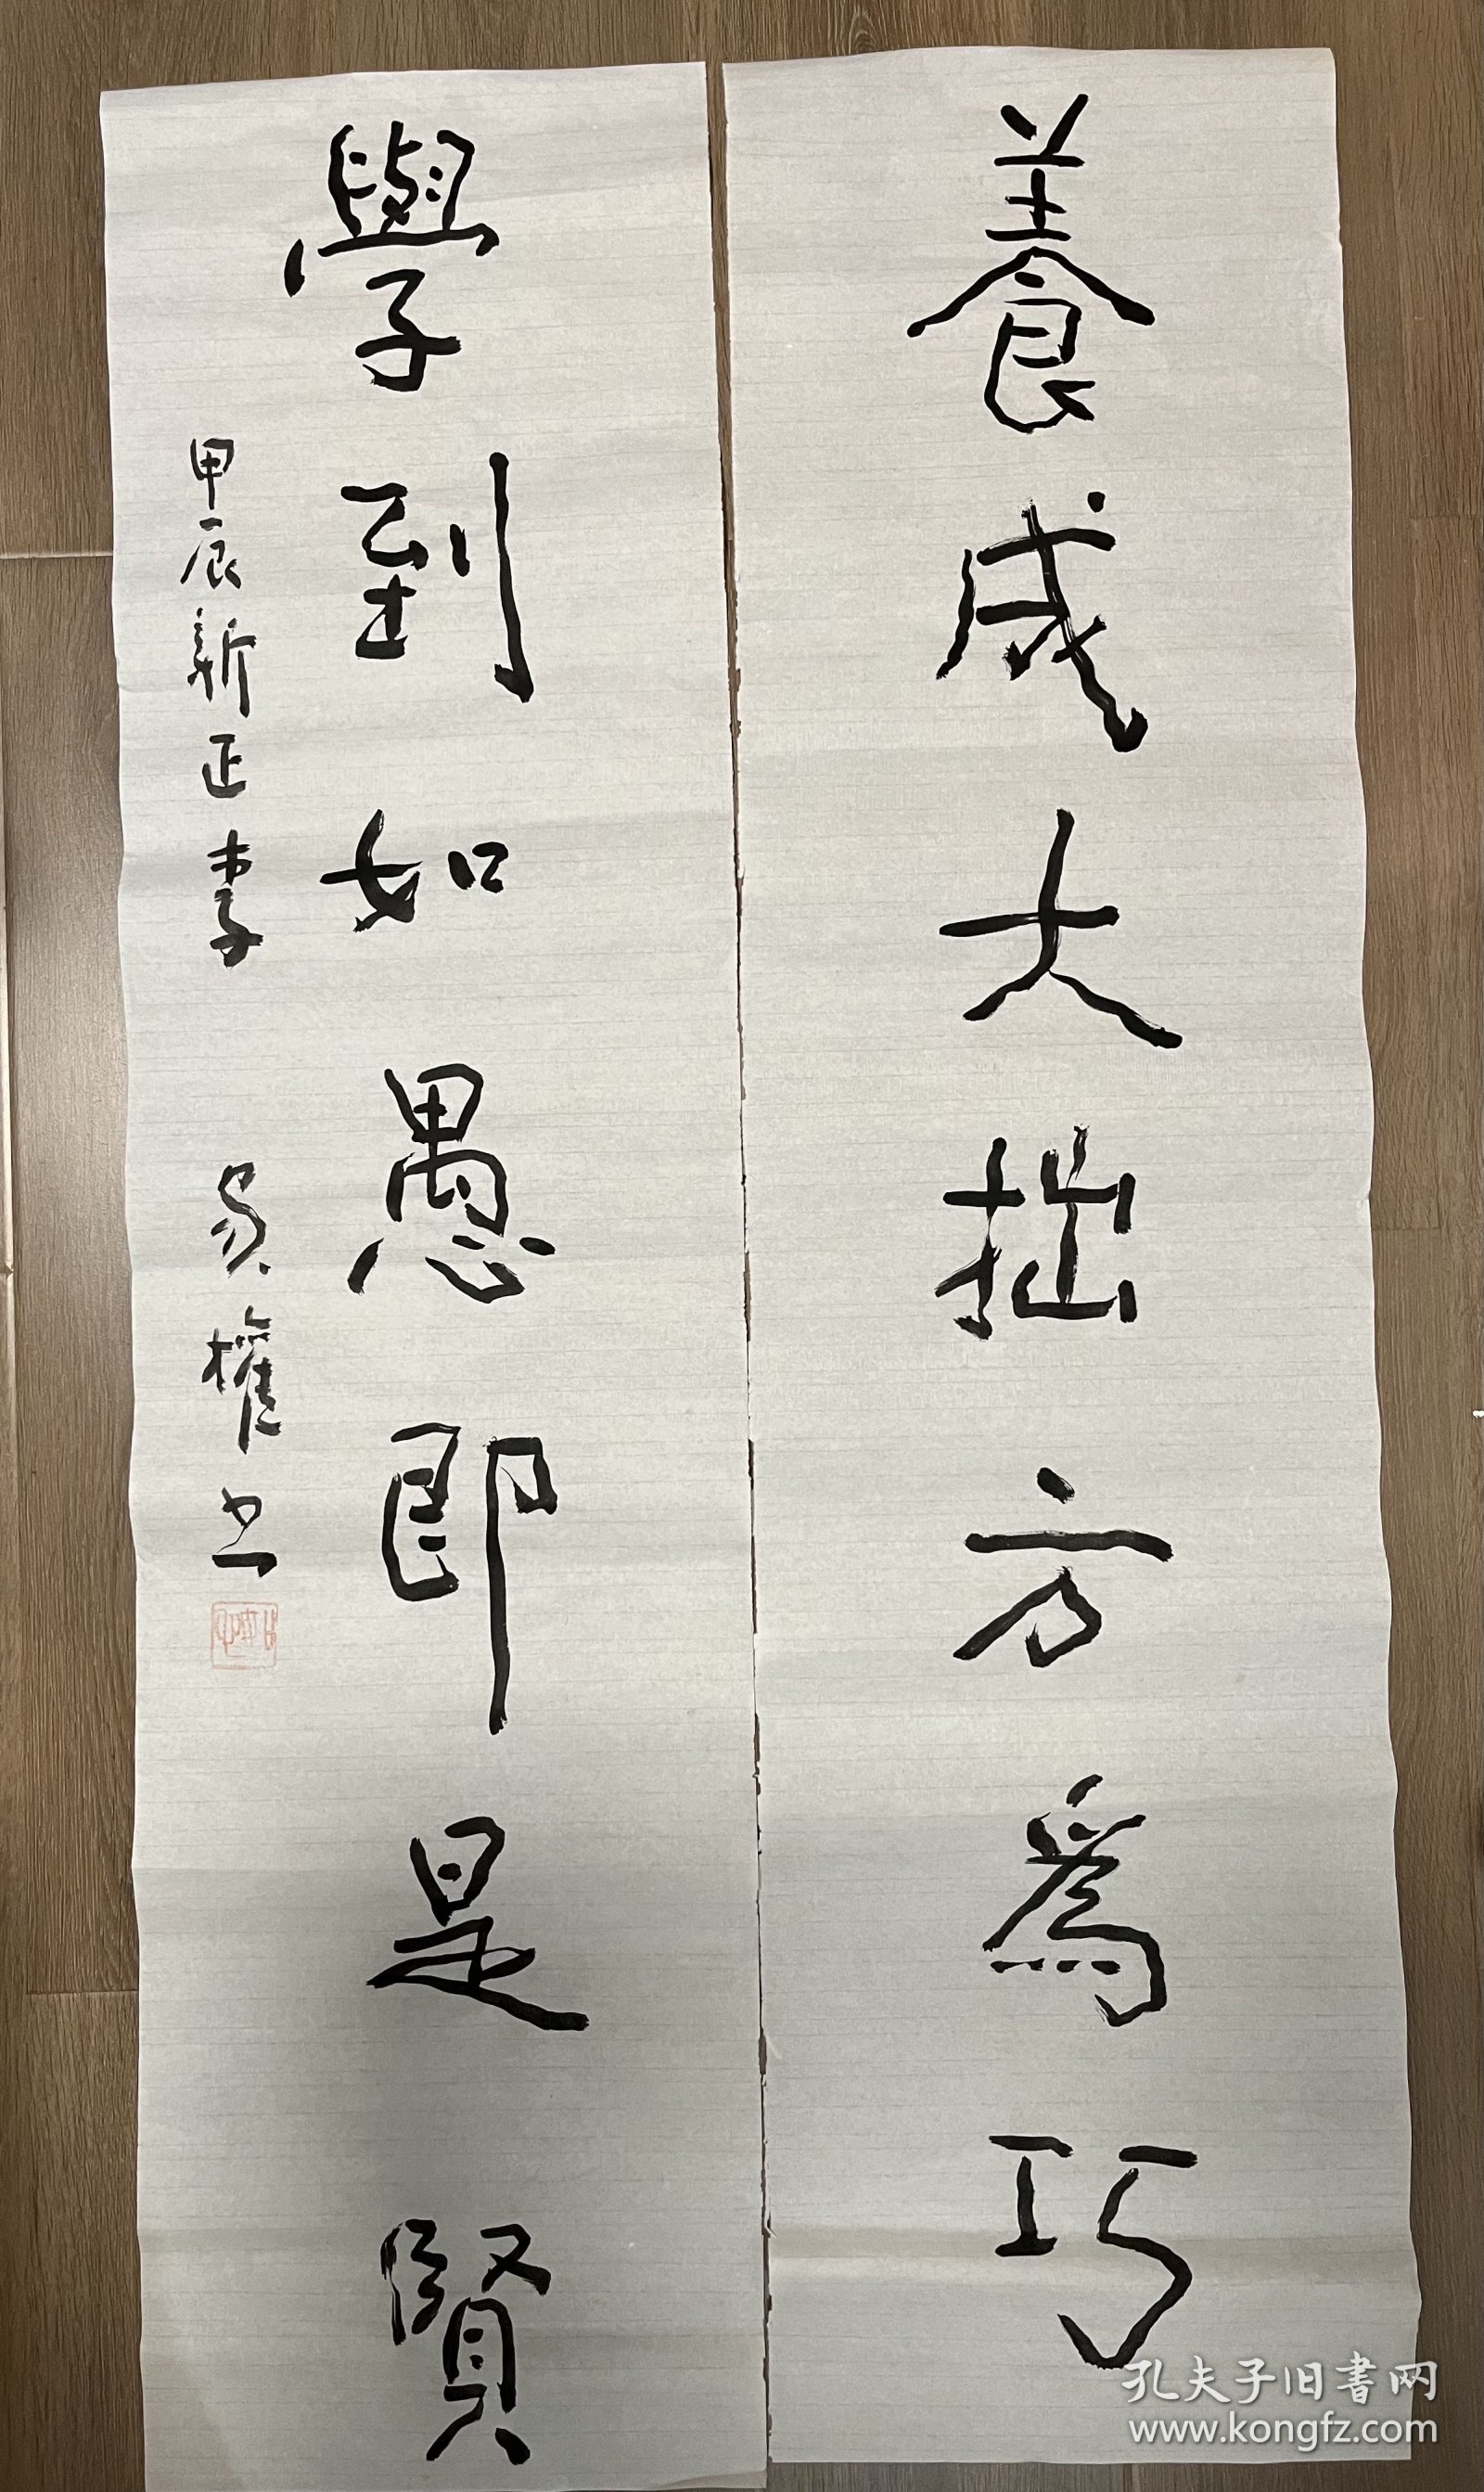 養成大拙方為巧
學到如愚即是賢
甲辰新正李
權書
孔夫子旧書网
www.kongfz.com